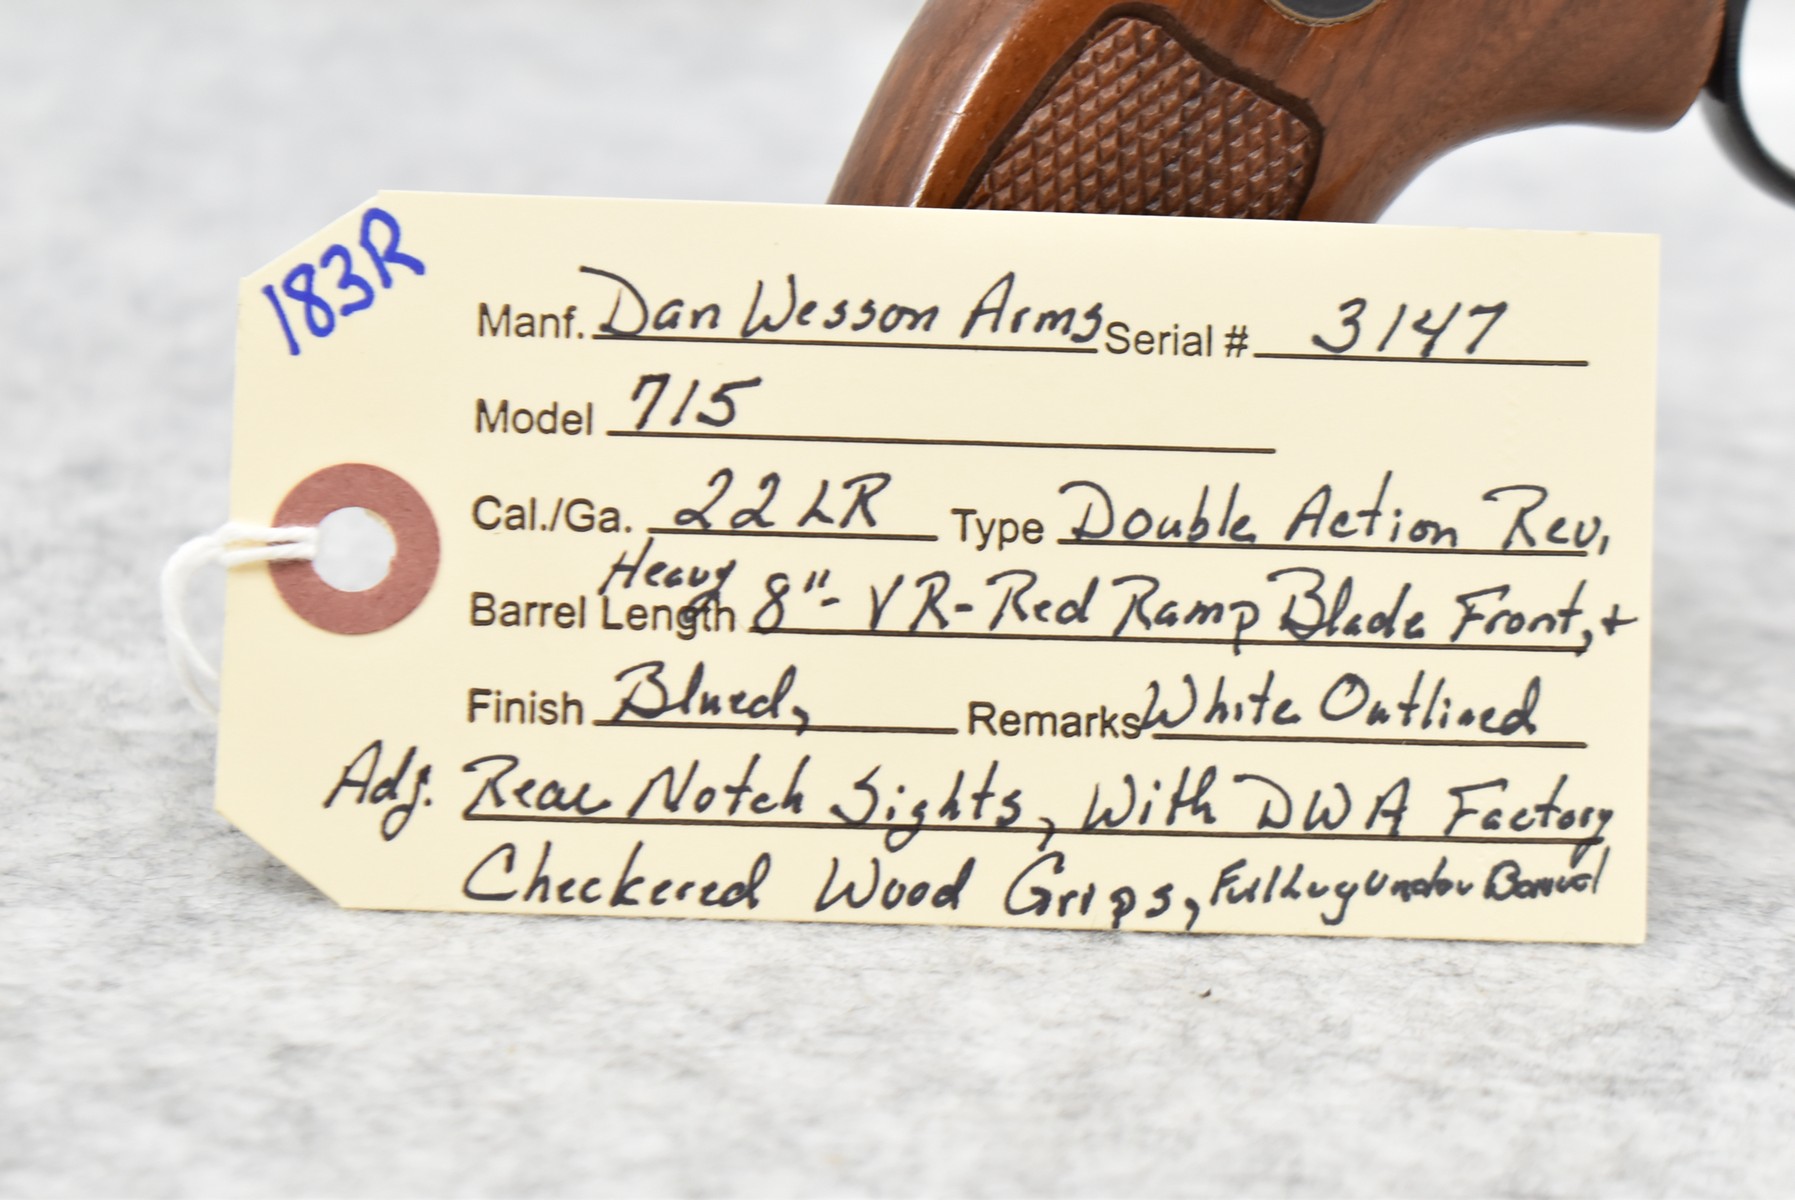 183R
Manf. Dan Wesson Arms Serial # 3147
Model 715
Cal./Ga. 22 LR Type Double Action Rev,
Heavy
Barrel Length 8"- VR-Red Ramp Blade Front, +
Finish Blued, Remarks White Outlined
Adj. Rear Notch Sights, With DWA Factory
Checkered Wood Grips, Full Lug Under Barrel